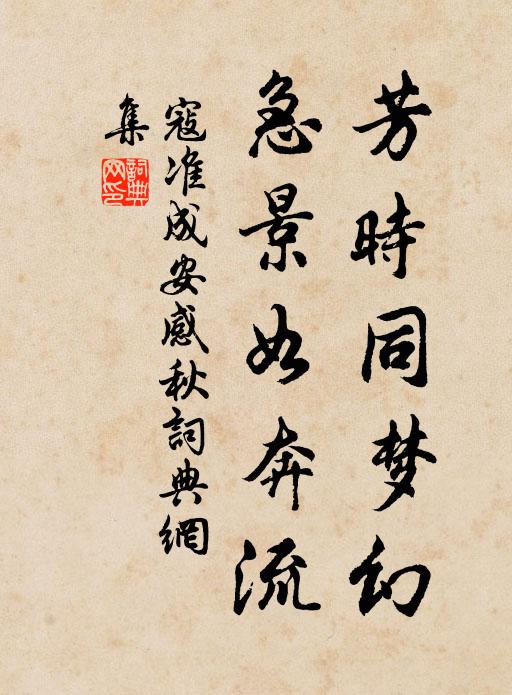 芳時同梦幻
急景如奔流
寇准成安感秋詞典網
集
詞典网印